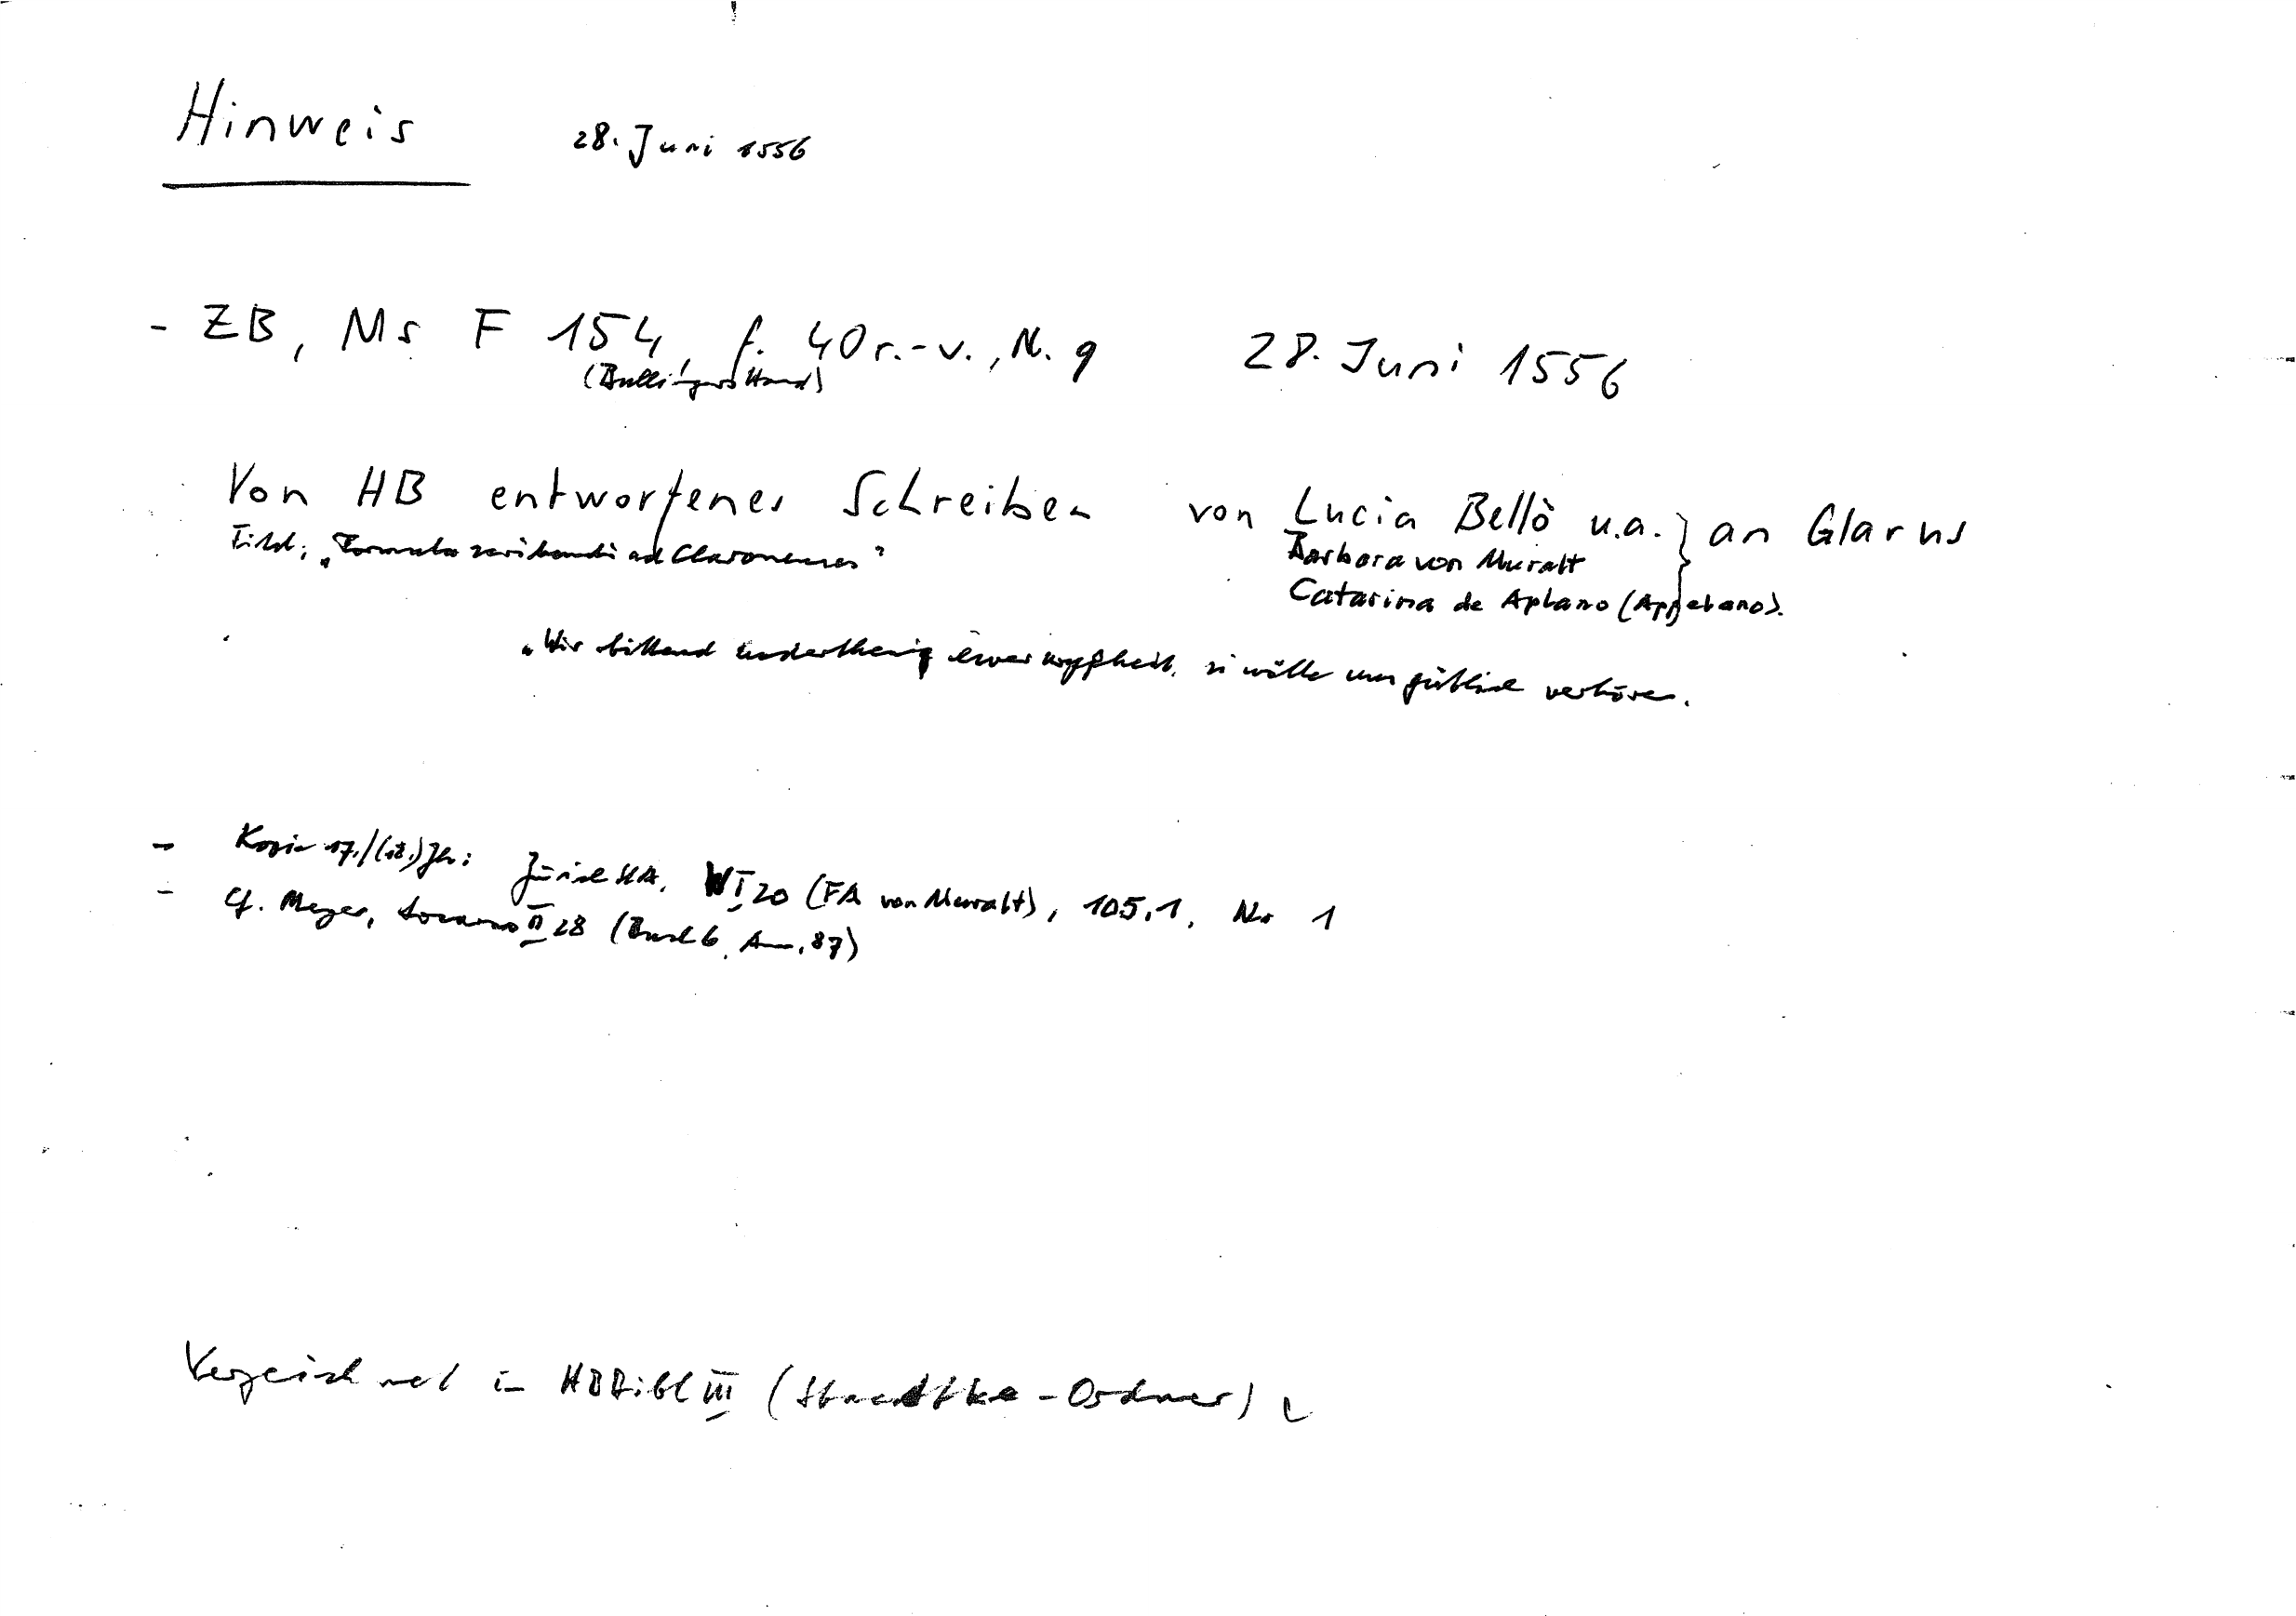 Hinweis 28. Juni 1556
- ZB, Ms F 154, f. 40r.-v., N. 9 28. Juni 1556
(Bullingers Hand)
Von HB entworfenes Schreiben von Lucia Bellò u.a. } an Glarus
Titel: „Formula scribendi ad Claronenses"
Barbara von Muralt
Catarina de Aplano (Appelano).
„Wir bittend underthenig üwer wyßheit, si wölle uns gütlich verhören.
- Kopie 17./(18.) Jh.: Zürich StA, W I 20 (FA von Muralt), 105.1, Nr 1
- Cf. Meyer, Locarno II 28 (Buch 6, Anm. 87)
Verzeichnet in HBBibl III (Staedtke-Ordner)